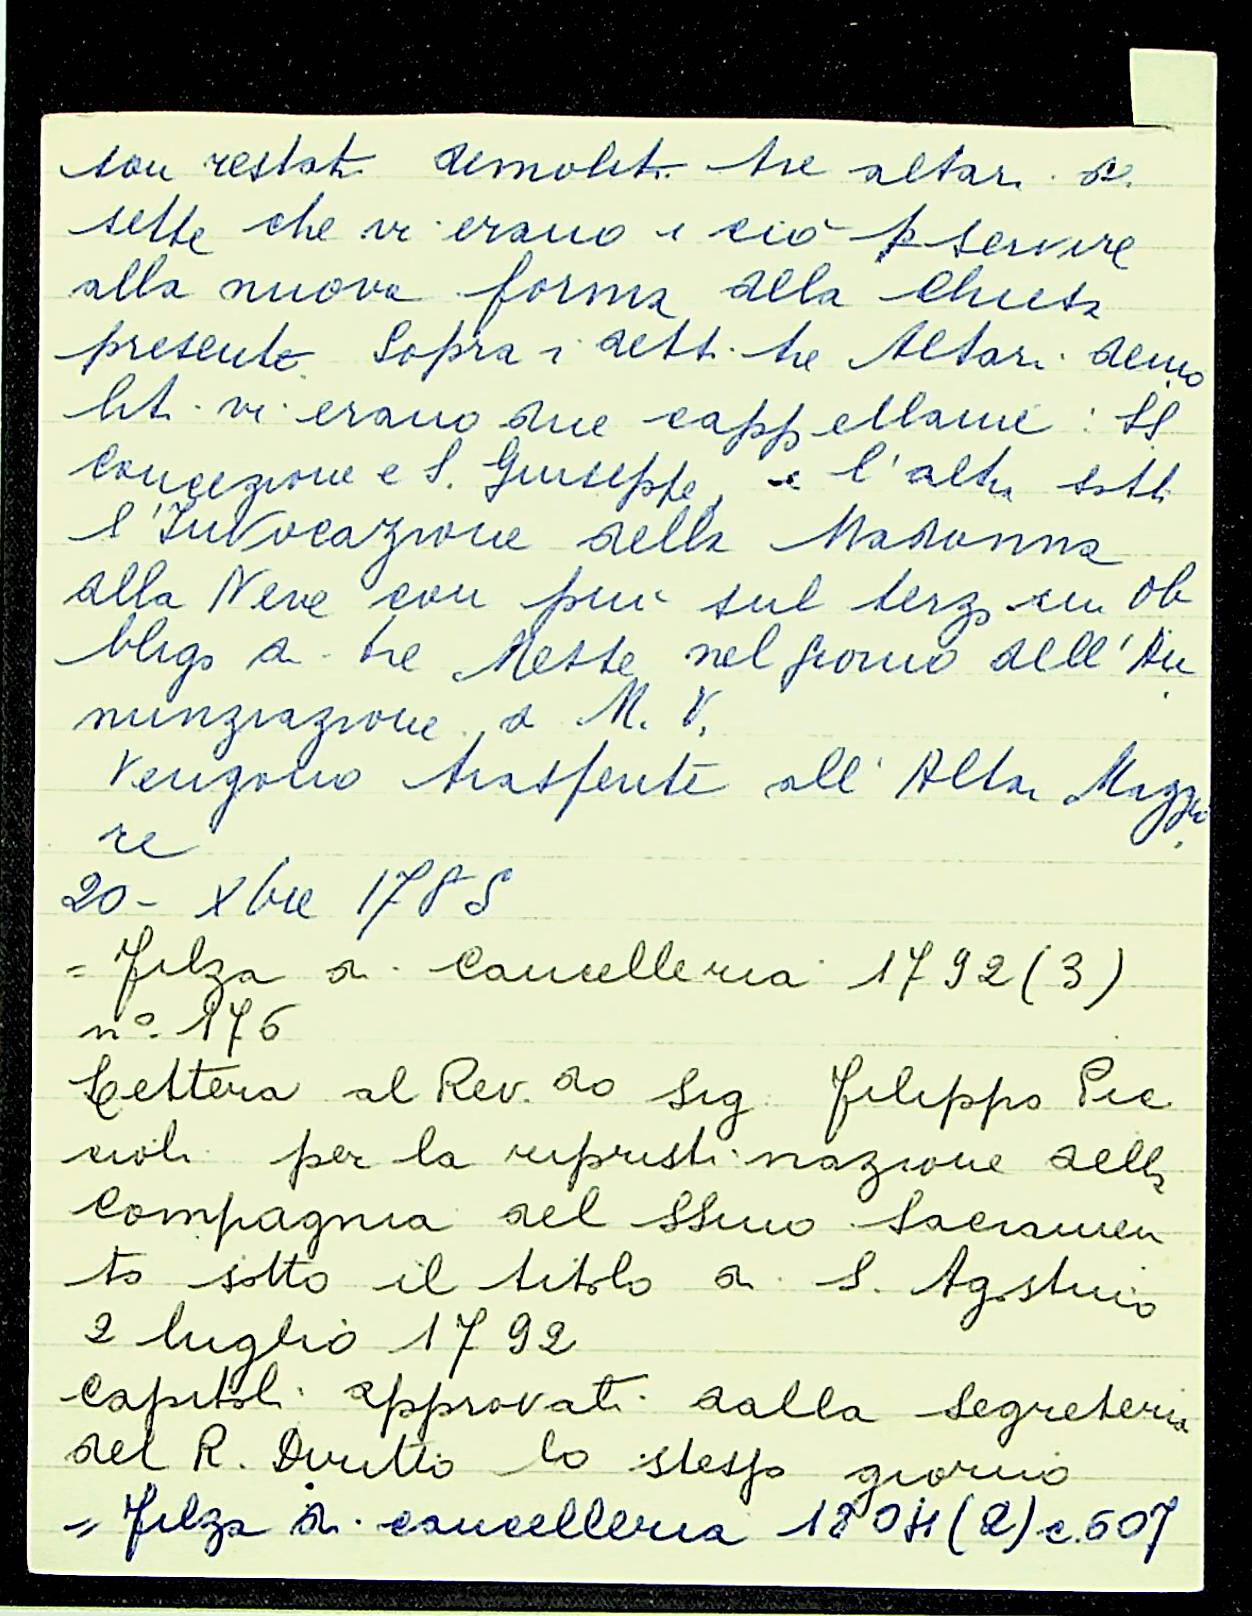 son restati demoliti tre altari di
sette che vi erano e ciò p servire
alla nuova forma della Chiesa
presente. Sopra i detti tre Altari demo
liti vi erano due cappellanie: SS
Concezione e S. Giuseppe, e l'altra sotto
l'Invocazione della Madonna
alla Neve con più sul terzo un Ob
bligo di tre Messe nel giorno dell'An
nunziazione di M. V.
Vengono trasferite all'Altar Maggio
re
20 - Xbre 1785
= Filza di Cancelleria 1792 (3)
n° 176
Lettera al Rev.do Sig. Filippo Pic
cioli per la ripristinazione della
Compagnia del SSmo Sacramen
to sotto il titolo di S. Agostino
2 luglio 1792
Capitoli approvati dalla Segreteria
del R. Diritto lo stesso giorno
= Filza di cancelleria 1804 (2) c. 607